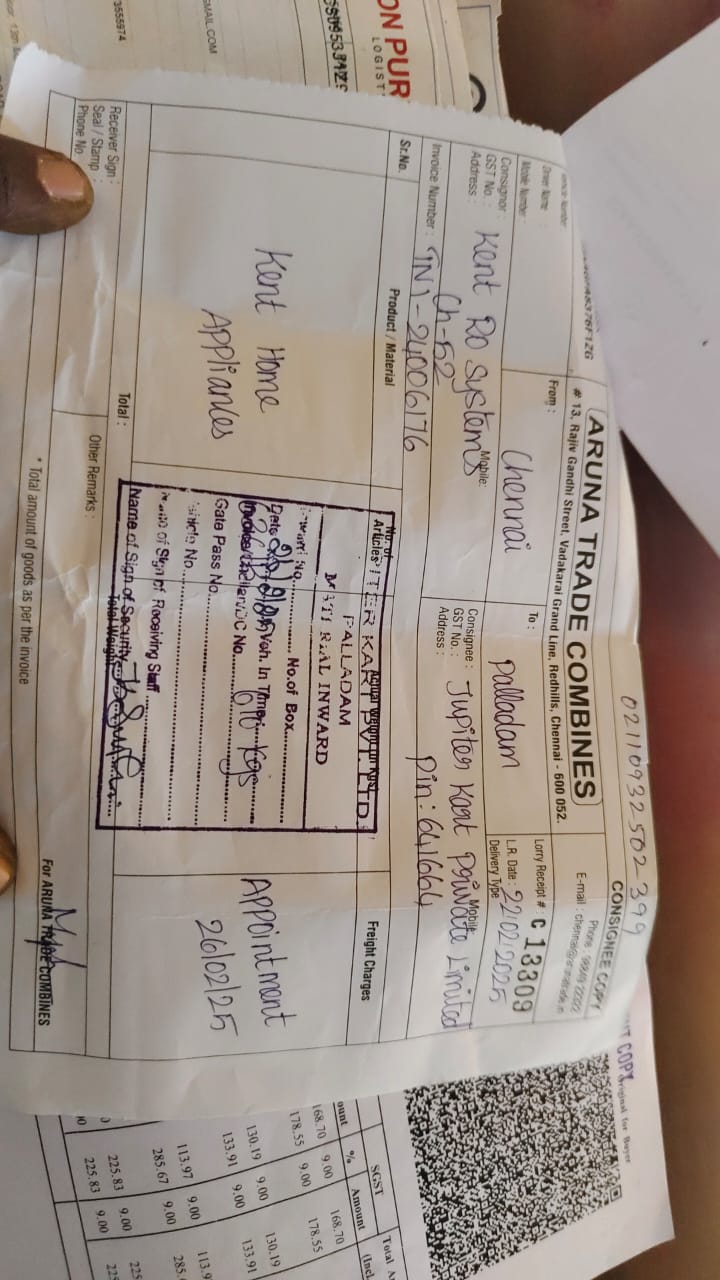 02110932502-399
CONSIGNEE COPY
ARUNA TRADE COMBINES
# 13, Rajiv Gandhi Street, Vadakarai Grand Line, Redhills, Chennai - 600 052.
Phone :
E-mail :
Mobile Number :
From :
Chennai
To :
Palladam
Lorry Receipt # : C 13309
L.R. Date : 22/02/2025
Delivery Type
Consignor :
GST No. :
Address :
Kent Ro Systems
Ch-52
Mobile:
Consignee :
GST No. :
Address :
Jupiter Kart Private Limited
Pin: 641664
Mobile:
Invoice Number : TN1-24006176
Sr.No.
Product / Material
No. of Articles
Freight Charges
Kent Home
Appliances
KART PVT. LTD.
PALLADAM
MATERIAL INWARD
No.of Box
Date
Veh. In Time
610 Kgs
Gate Pass No.
Vehicle No.
Name of Sign of Receiving Staff
Name of Sign of Security
Total Weight
Appointment
26/02/25
Total :
Receiver Sign :
Seal / Stamp :
Phone No.
Other Remarks :
For ARUNA TRADE COMBINES
* Total amount of goods as per the invoice
ON PUR
LOGIST
GMAIL.COM
3555974
COPY
Original for Buyer
SGST
Total A
ount
%
Amount
(Incl.
168.70 9.00 168.70
178.55 9.00 178.55
130.19 9.00 130.19
133.91 9.00 133.91
113.97 9.00 113.9
285.67 9.00 285.
225.83 9.00 225
225.83 9.00 225